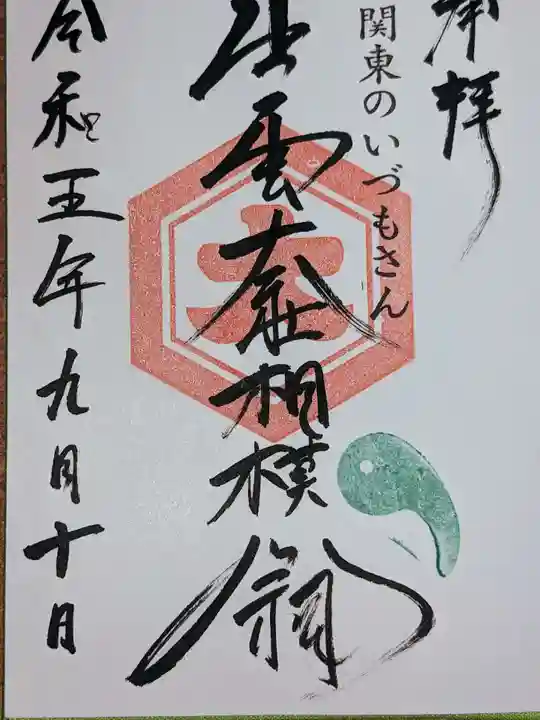 奉拝
関東のいづもさん
出雲大社相模分祠
令和五年九月十日
大